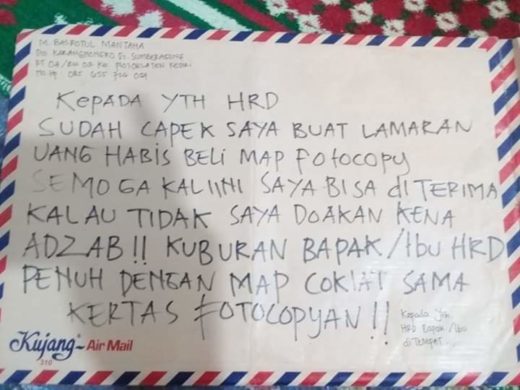 M. BASROTUL MANTAHA
KEPADA YTH HRD
SUDAH CAPEK SAYA BUAT LAMARAN
UANG HABIS BELI MAP FOTOCOPY
SEMOGA KALI INI SAYA BISA diTERIMA
KALAU TIDAK SAYA DOAKAN KENA
ADZAB!! KUBURAN BAPAK/Ibu HRD
PENUH DENGAN MAP COKLAT SAMA
KERTAS FOTOCOPYAN!!
Kepada Yth
HRD Bapak/Ibu
diTEMPAT
Kujang Air Mail
310